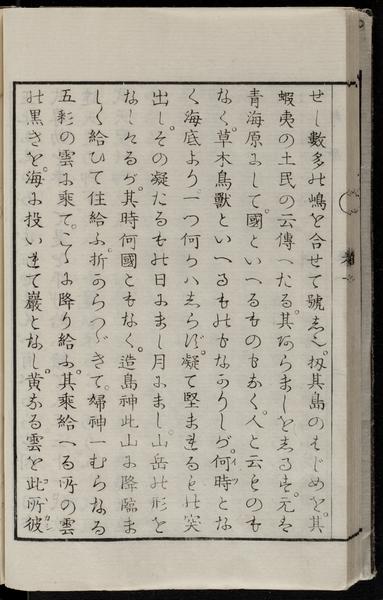 せし數多の嶋を合せて號しと也。扨其島のはじめを。其
蝦夷の土民の云傳へたる。其あらましをしるすに。元は
青海原にして。國といへるものもなく。人と云ものも
なく。草木鳥獸といへるものもなかりしが。何時とな
く海底より一つ何かはしらず。凝て堅まれるもの突
出し。その凝たるもの日にまし月にまし。山岳の形を
なしけるが。其時何國ともなく。造島神此山に降臨ま
しく給ひて住給ふ。折からつゞきて。婦神一むらなる
五彩の雲に乘て。こゝに降り給ふ。其乘給へる所の雲
の黒きを。海に投いれて巖となし。黄なる雲を此所彼